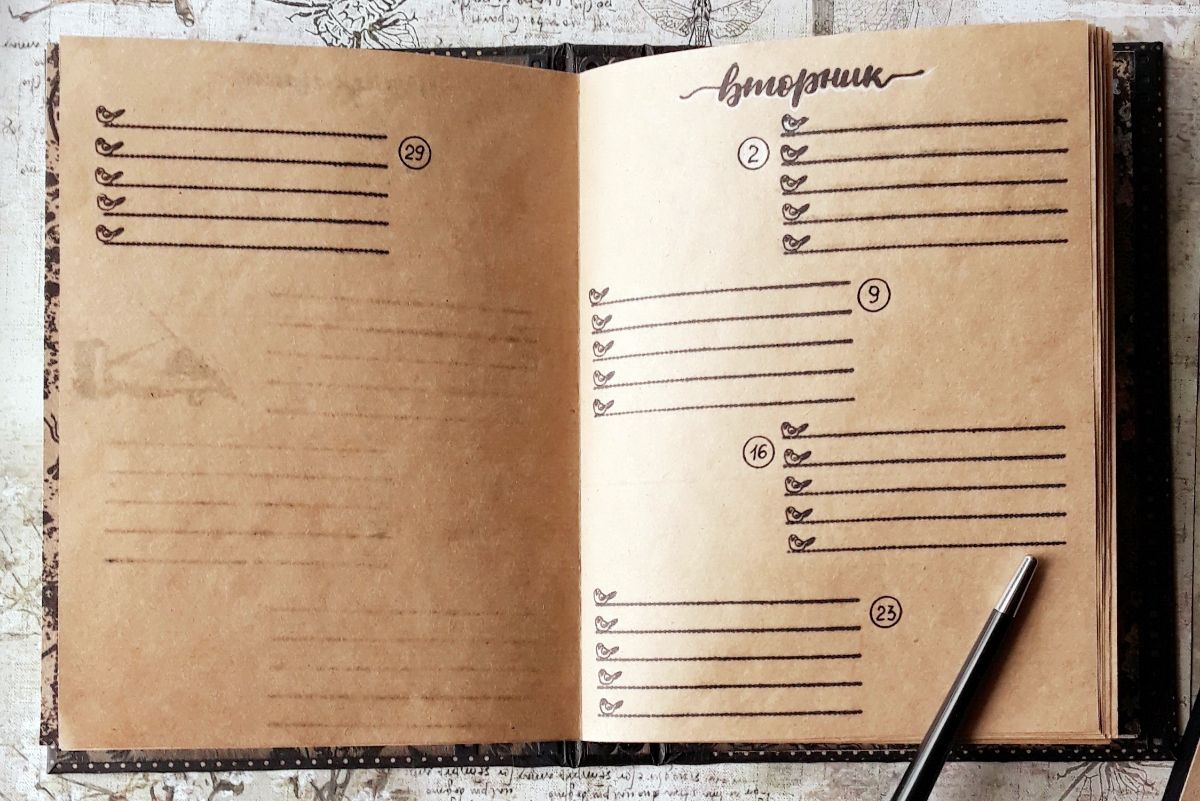 29
вторник
2
9
16
23